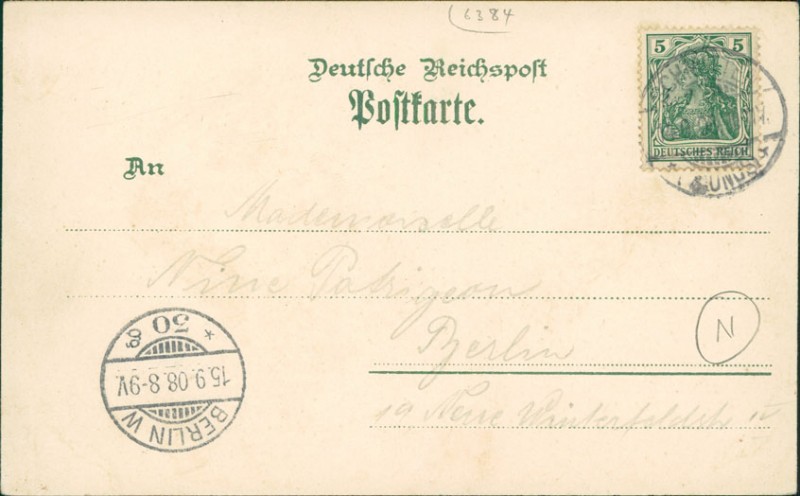 6384
Deutsche Reichspost
Postkarte.
5 5
DEUTSCHES REICH
An
Mademoiselle
Nine Patrigeon
Berlin
19 Neue Winterfeldstr
N
BERLIN W
* 50
15.9.08.8-9V.